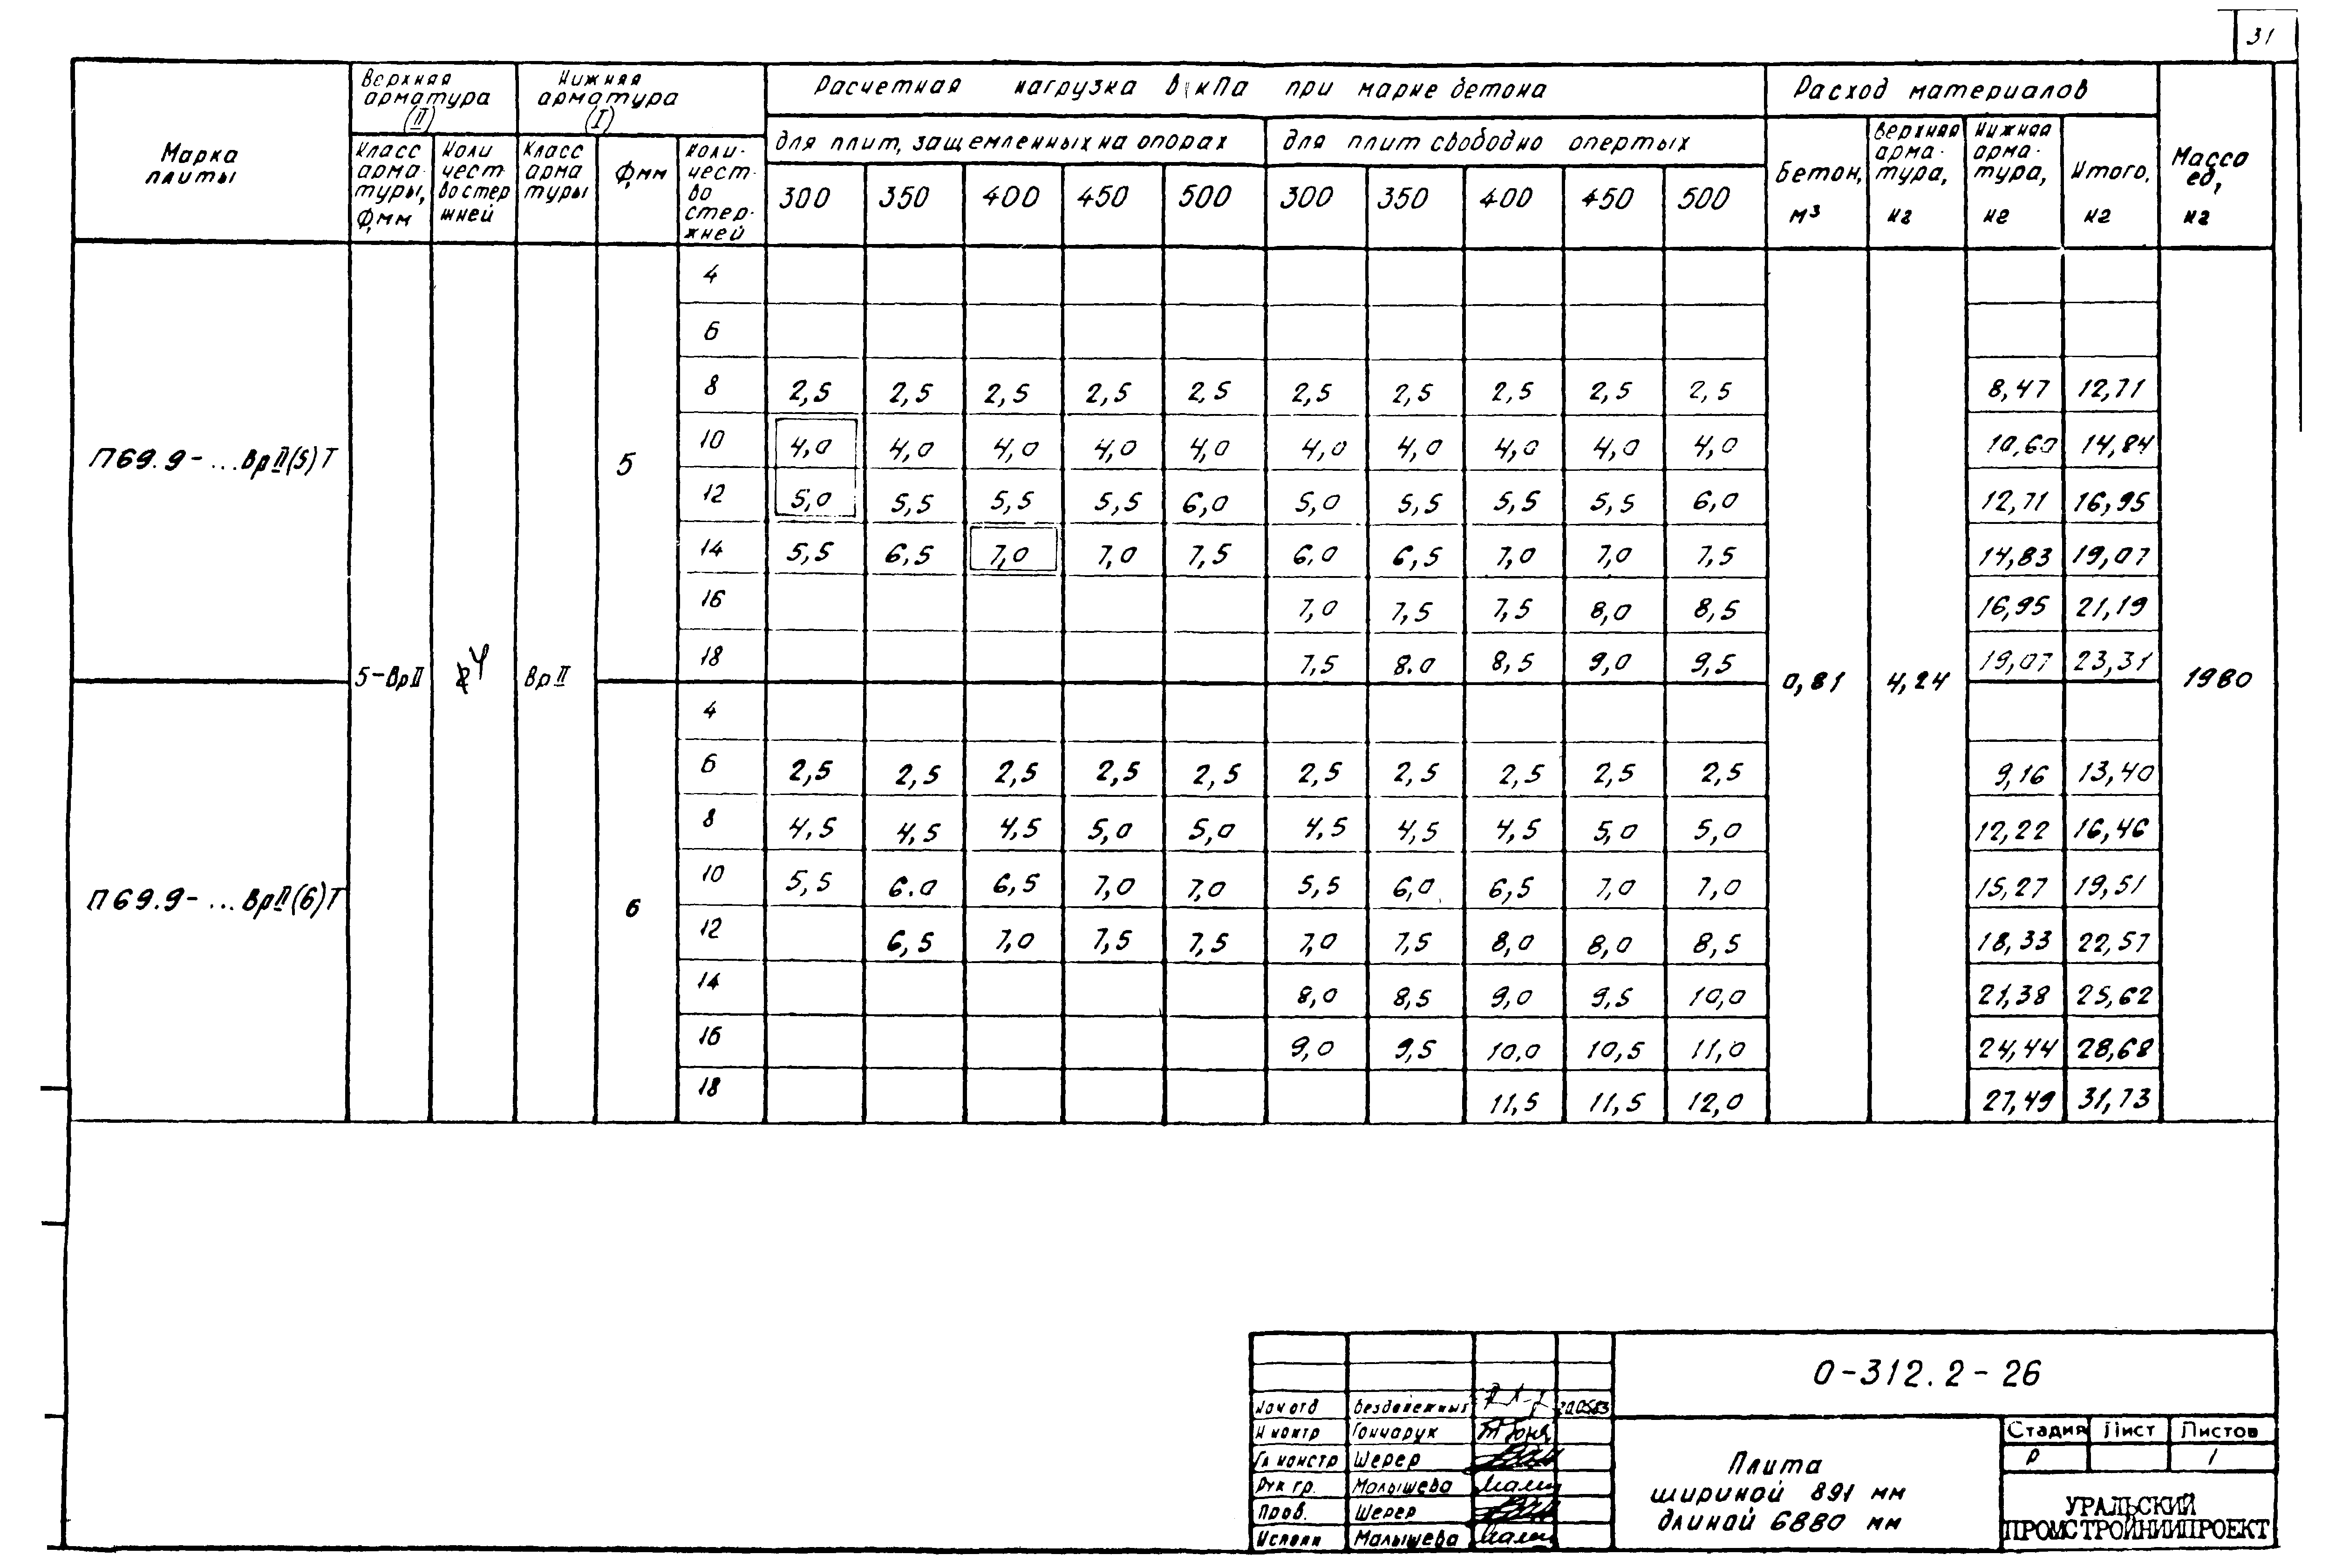 31
Марка плиты
Верхняя арматура (II)
Нижняя арматура (I)
Расчетная нагрузка в кПа при марке бетона
Расход материалов
Масса ед, кг
для плит, защемленных на опорах
для плит свободно опертых
Класс арматуры, Ф,мм
Количество стержней
Класс арматуры
Ф,мм
Количество стержней
300 350 400 450 500 300 350 400 450 500
Бетон, м³
Верхняя арматура, кг
Нижняя арматура, кг
Итого, кг
П69.9-...ВрII(5)Т
5-ВрII
4
ВрII
5
0,81
4,24
1980
4
6
8 2,5 2,5 2,5 2,5 2,5 2,5 2,5 2,5 2,5 2,5 8,47 12,71
10 4,0 4,0 4,0 4,0 4,0 4,0 4,0 4,0 4,0 4,0 10,60 14,84
12 5,0 5,5 5,5 5,5 6,0 5,0 5,5 5,5 5,5 6,0 12,71 16,95
14 5,5 6,5 7,0 7,0 7,5 6,0 6,5 7,0 7,0 7,5 14,83 19,07
16 7,0 7,5 7,5 8,0 8,5 16,95 21,19
18 7,5 8.0 8,5 9,0 9,5 19,07 23,31
П69.9-...ВрII(6)Т
6
4
6 2,5 2,5 2,5 2,5 2,5 2,5 2,5 2,5 2,5 2,5 9,16 13,40
8 4,5 4,5 4,5 5,0 5,0 4,5 4,5 4,5 5,0 5,0 12,22 16,46
10 5,5 6.0 6,5 7,0 7,0 5,5 6,0 6,5 7,0 7,0 15,27 19,51
12 6,5 7,0 7,5 7,5 7,0 7,5 8,0 8,0 8,5 18,33 22,57
14 8,0 8,5 9,0 9,5 10,0 21,38 25,62
16 9,0 9,5 10,0 10,5 11,0 24,44 28,68
18 11,5 11,5 12,0 27,49 31,73
0-312.2-26
Нач отд Бездележных
Н контр Гончарук
Гл констр Шерер
Рук гр. Малышева
Пров. Шерер
Исполн Малышева
Плита
шириной 891 мм
длиной 6880 мм
Стадия Лист Листов
Р 1
УРАЛЬСКИЙ
ПРОМСТРОЙНИИПРОЕКТ